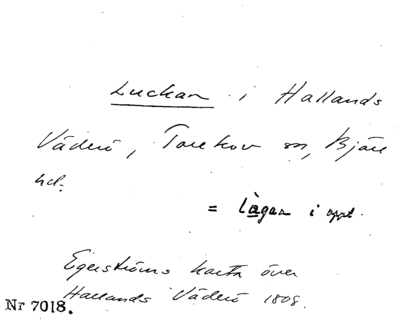 Luckan i Hallands
Väderö, Torekov sn, Bjäre
hd.
= lågan i uppt.
Egerströms karta över
Hallands Väderö 1808.
Nr 7018.